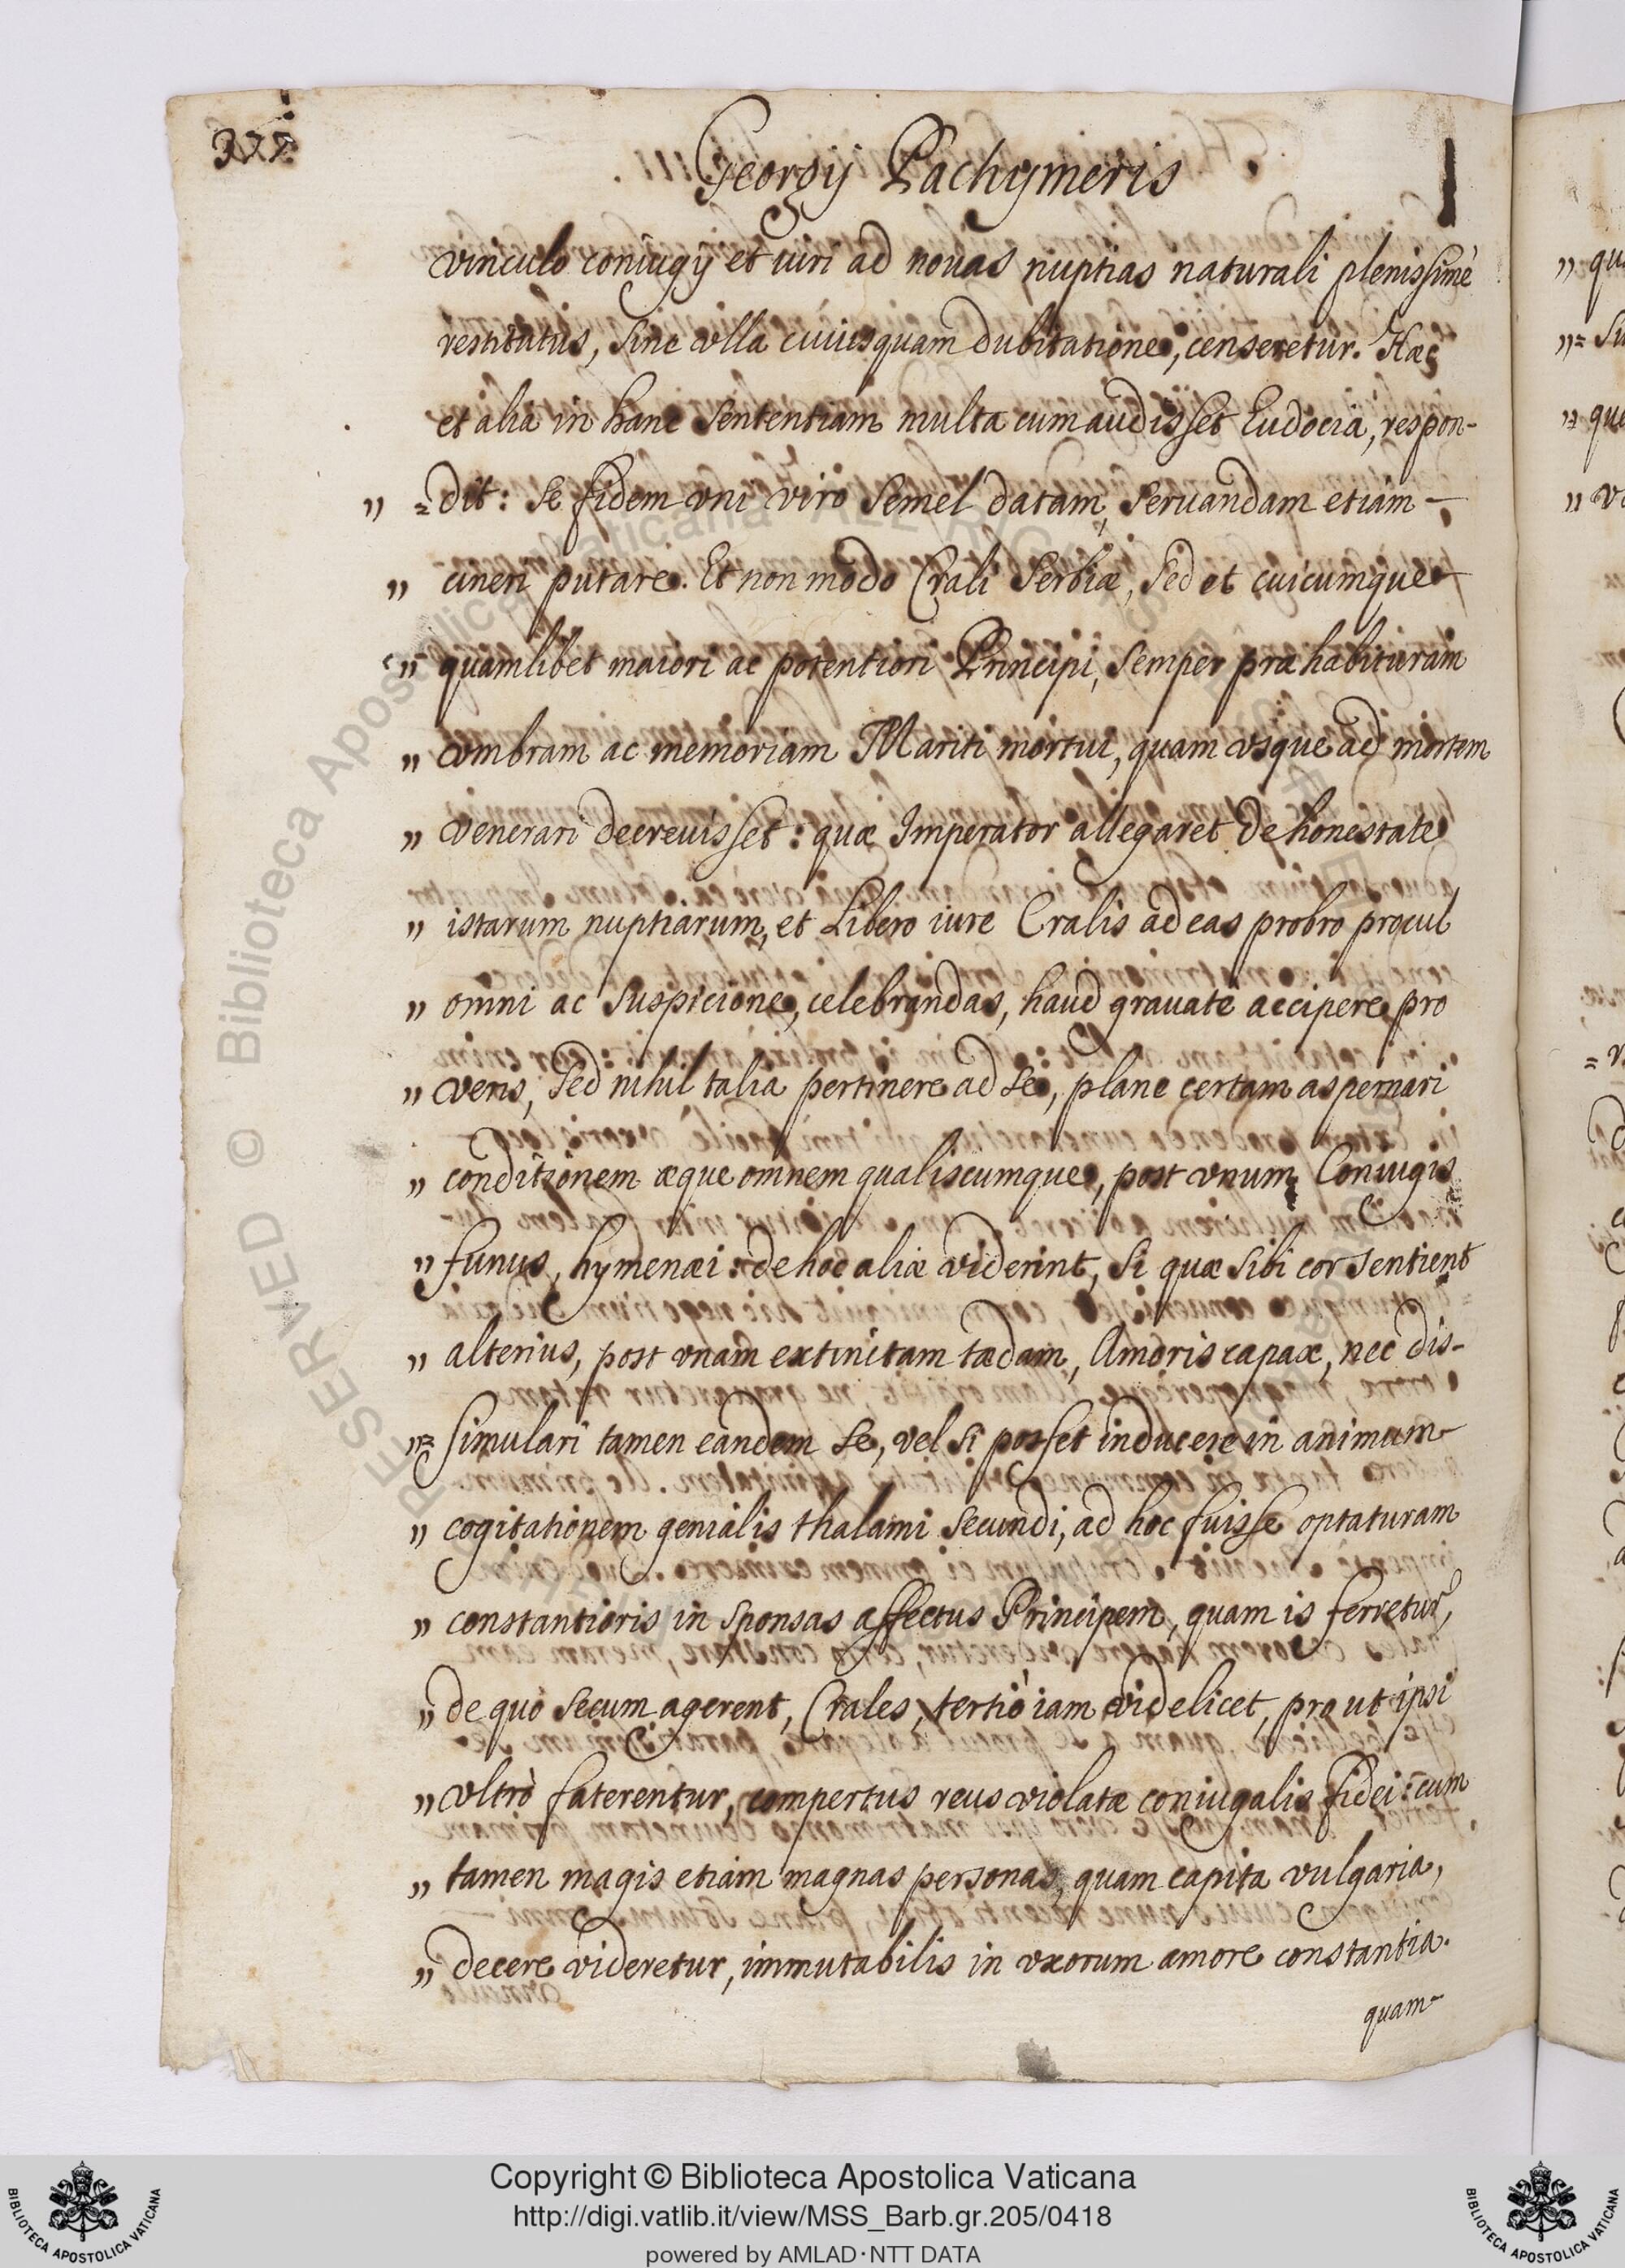 Georgij Pachymeris
vinculo coniugij et iuri ad nouas nuptias naturali plenissimè
restitutus, sine vlla cuiusquam dubitatione, censeretur. Hæc
et alia in hanc sententiam multa cum audisset Eudocia, respon-
„ =dit: se fidem vni viro semel datam, seruandam etiam
„ cineri putare. Et non modo Crali Serbiæ, sed et cuicumque
„ quamlibet maiori ac potentiori Principi, semper præhabituram
„ vmbram ac memoriam Mariti mortui, quam vsque ad mortem
„ venerari decreuisset: quæ Imperator allegaret de honestate
„ istarum nuptiarum, et Libero iure Cralis ad eas probro procul
„ omni ac suspicione, celebrandas, haud grauatè accipere pro
„ veris, sed nihil talia pertinere ad se, plane certam aspernari
„ conditionem æque omnem qualiscumque, post vnum Coniugis
„ funus, hymenæi: de hoc aliæ viderint, si quæ sibi cor sentient
„ alterius, post vnam extinctam tædam, Amoris capax, nec dis-
„= simulari tamen eandem se, vel si posset inducere in animum
„ cogitationem genialis thalami secundi, ad hoc fuisse optaturam
„ constantioris in sponsas affectus Principem, quam is ferretur,
„ de quo secum agerent, Crales, tertiò iam videlicet, pro ut ipsi
„ vltrò faterentur, compertus reus violatæ coniugalis fidei: cum
„ tamen magis etiam magnas personas, quam capita vulgaria,
„ decere videretur, immutabilis in vxorum amore constantia.
quam
Copyright © Biblioteca Apostolica Vaticana
http://digi.vatlib.it/view/MSS_Barb.gr.205/0418
powered by AMLAD·NTT DATA
BIBLIOTECA APOSTOLICA VATICANA
BIBLIOTECA APOSTOLICA VATICANA